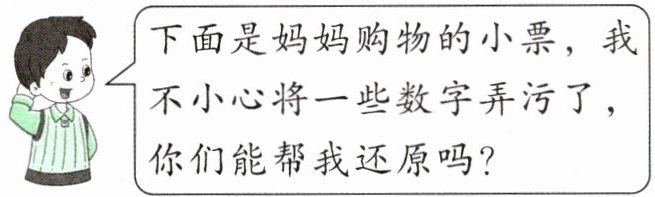 下面是妈妈购物的小票，我
不小心将一些数字弄污了，
你们能帮我还原吗？